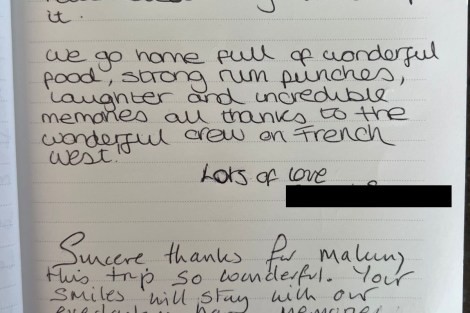 it.
we go home full of wonderful
food, strong rum punches,
laughter and incredible
memories all thanks to the
wonderful crew on French
West.
Lots of love
Sincere thanks for making
this trip so wonderful. Your
smiles will stay with our